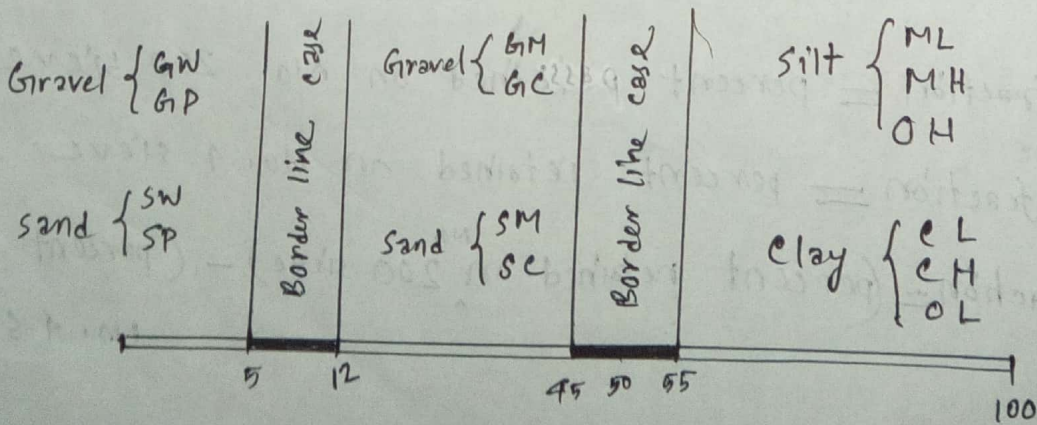 Gravel { GW
GP
Sand { SW
SP
Border line case
Gravel { GM
GC
Sand { SM
SC
Border line case
Silt { ML
MH
OH
Clay { CL
CH
OL
5 12 45 50 55 100